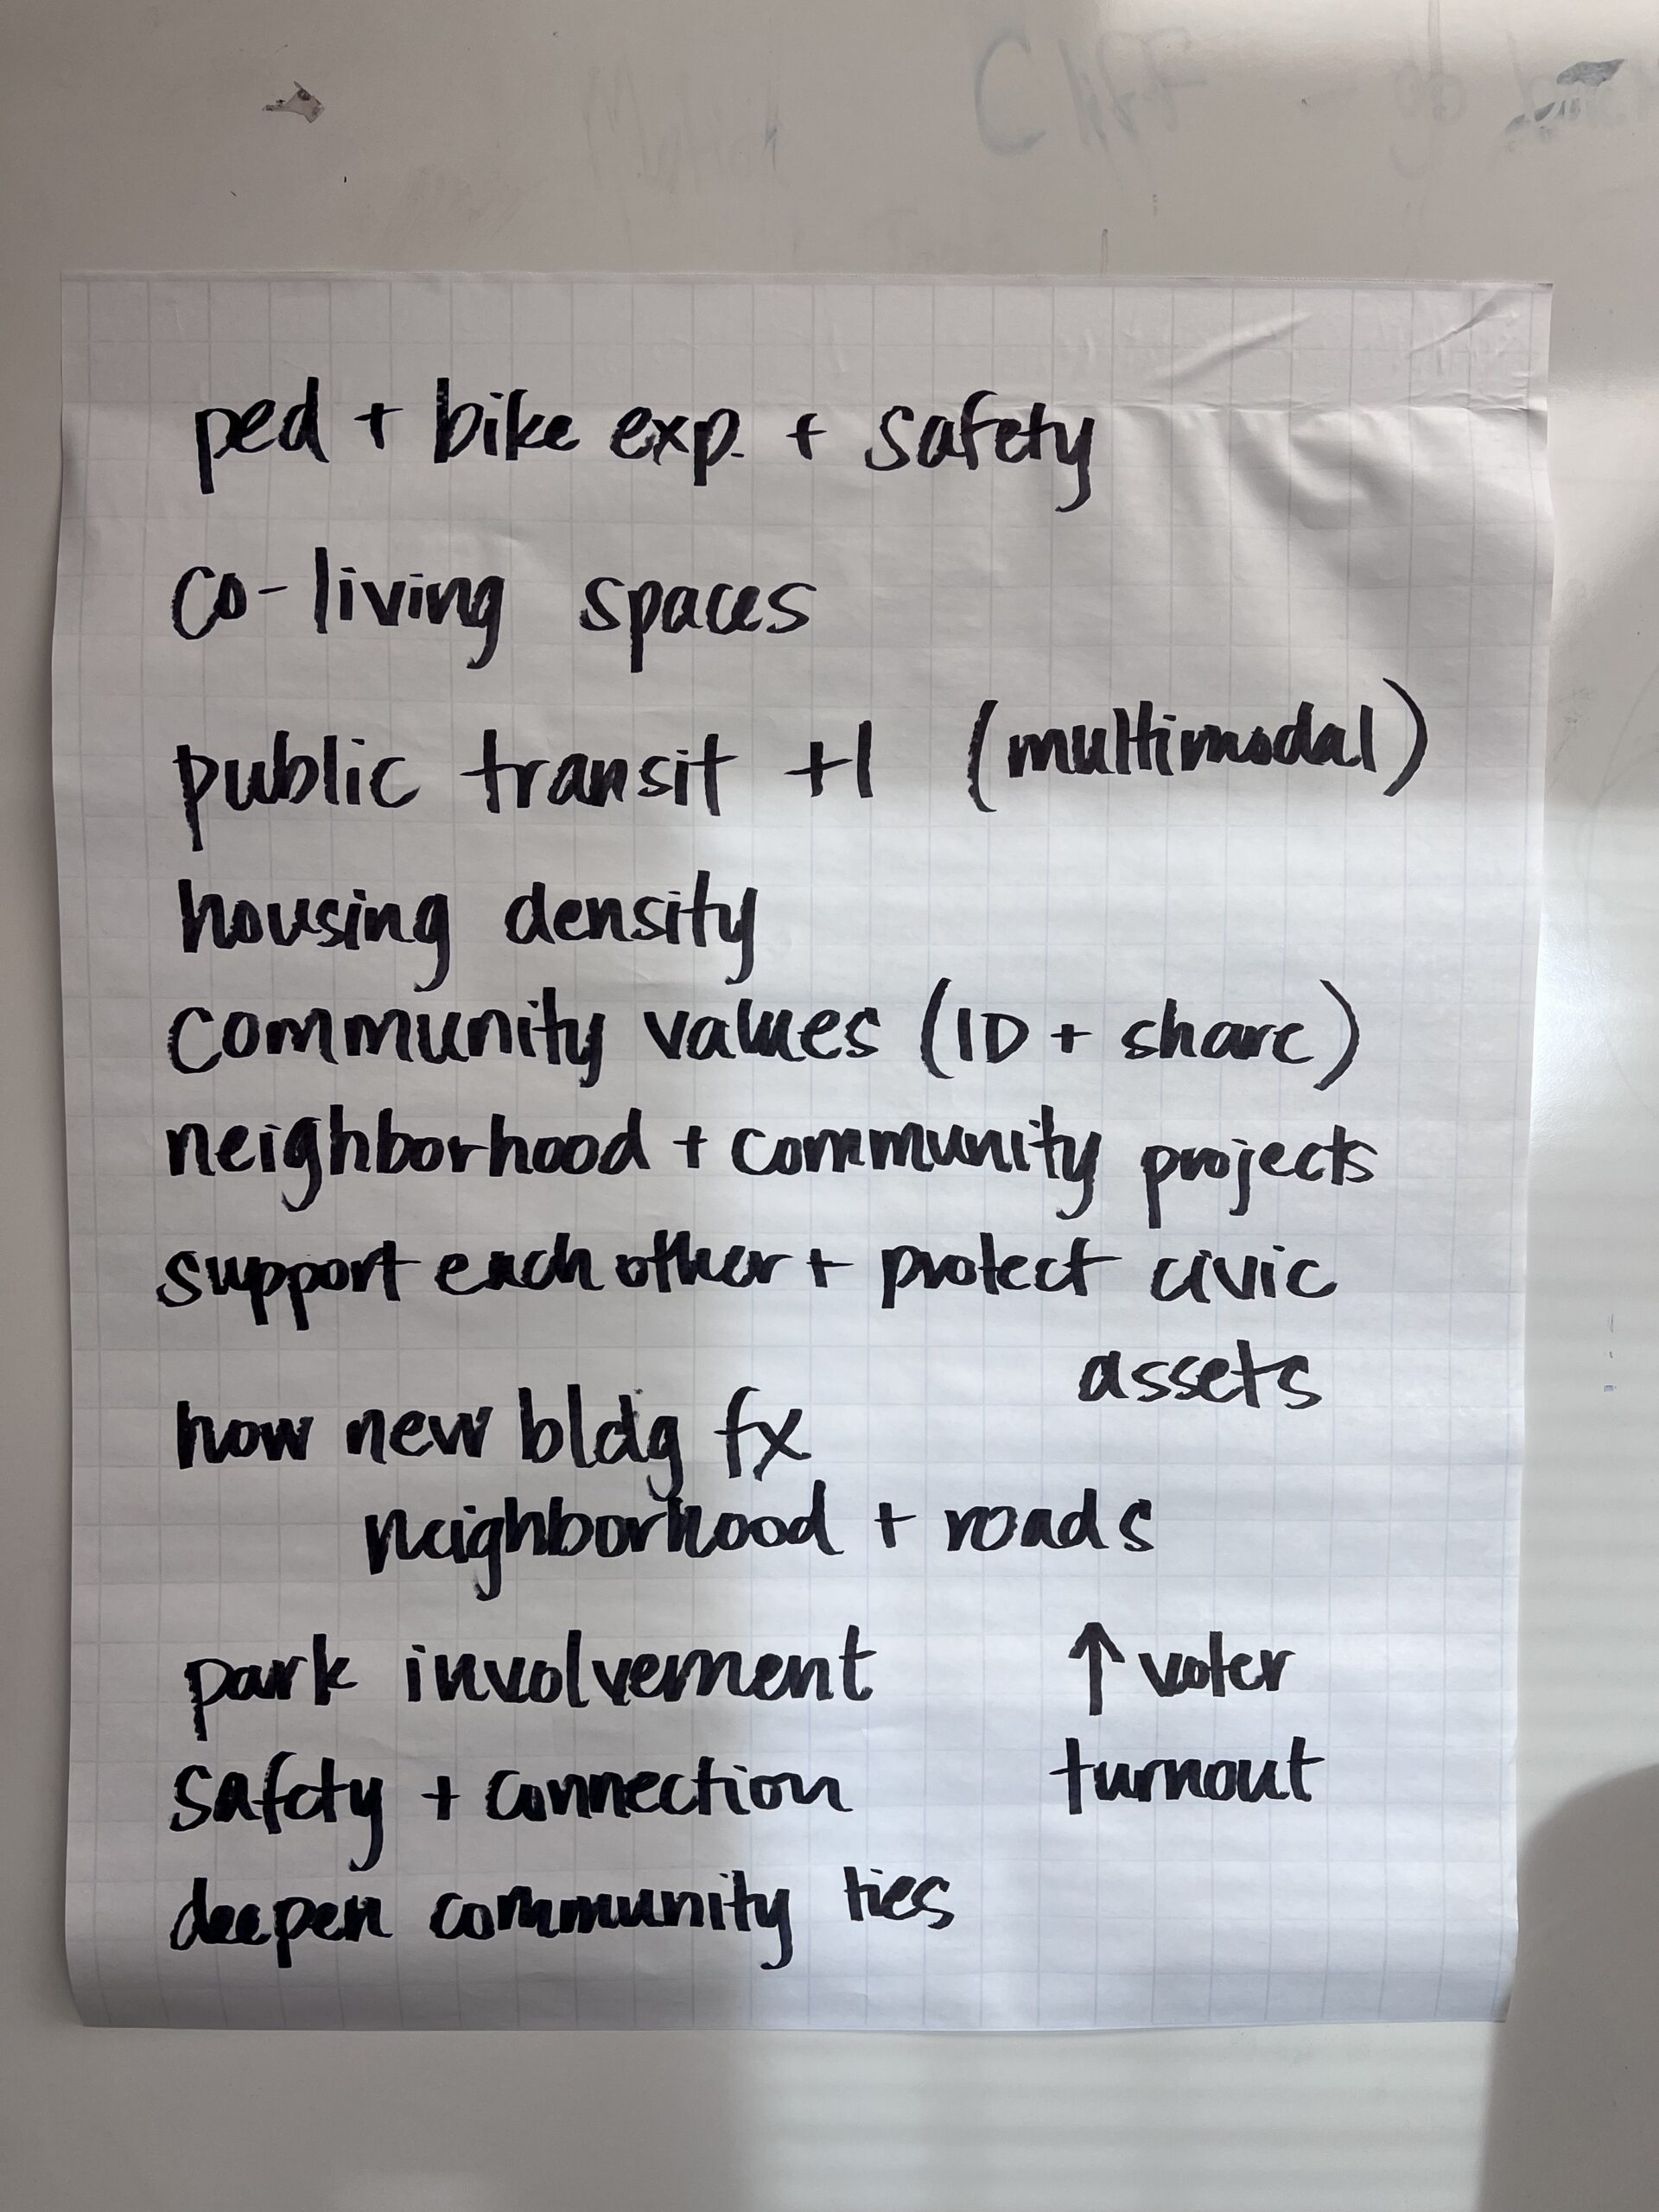 ped + bike exp. + safety
co-living spaces
public transit +1 (multimodal)
housing density
community values (ID + share)
neighborhood + community projects
support each other + protect civic
assets
how new bldg fx
neighborhood + roads
park involvement
safety + connection
deepen community ties
↑ voter
turnout